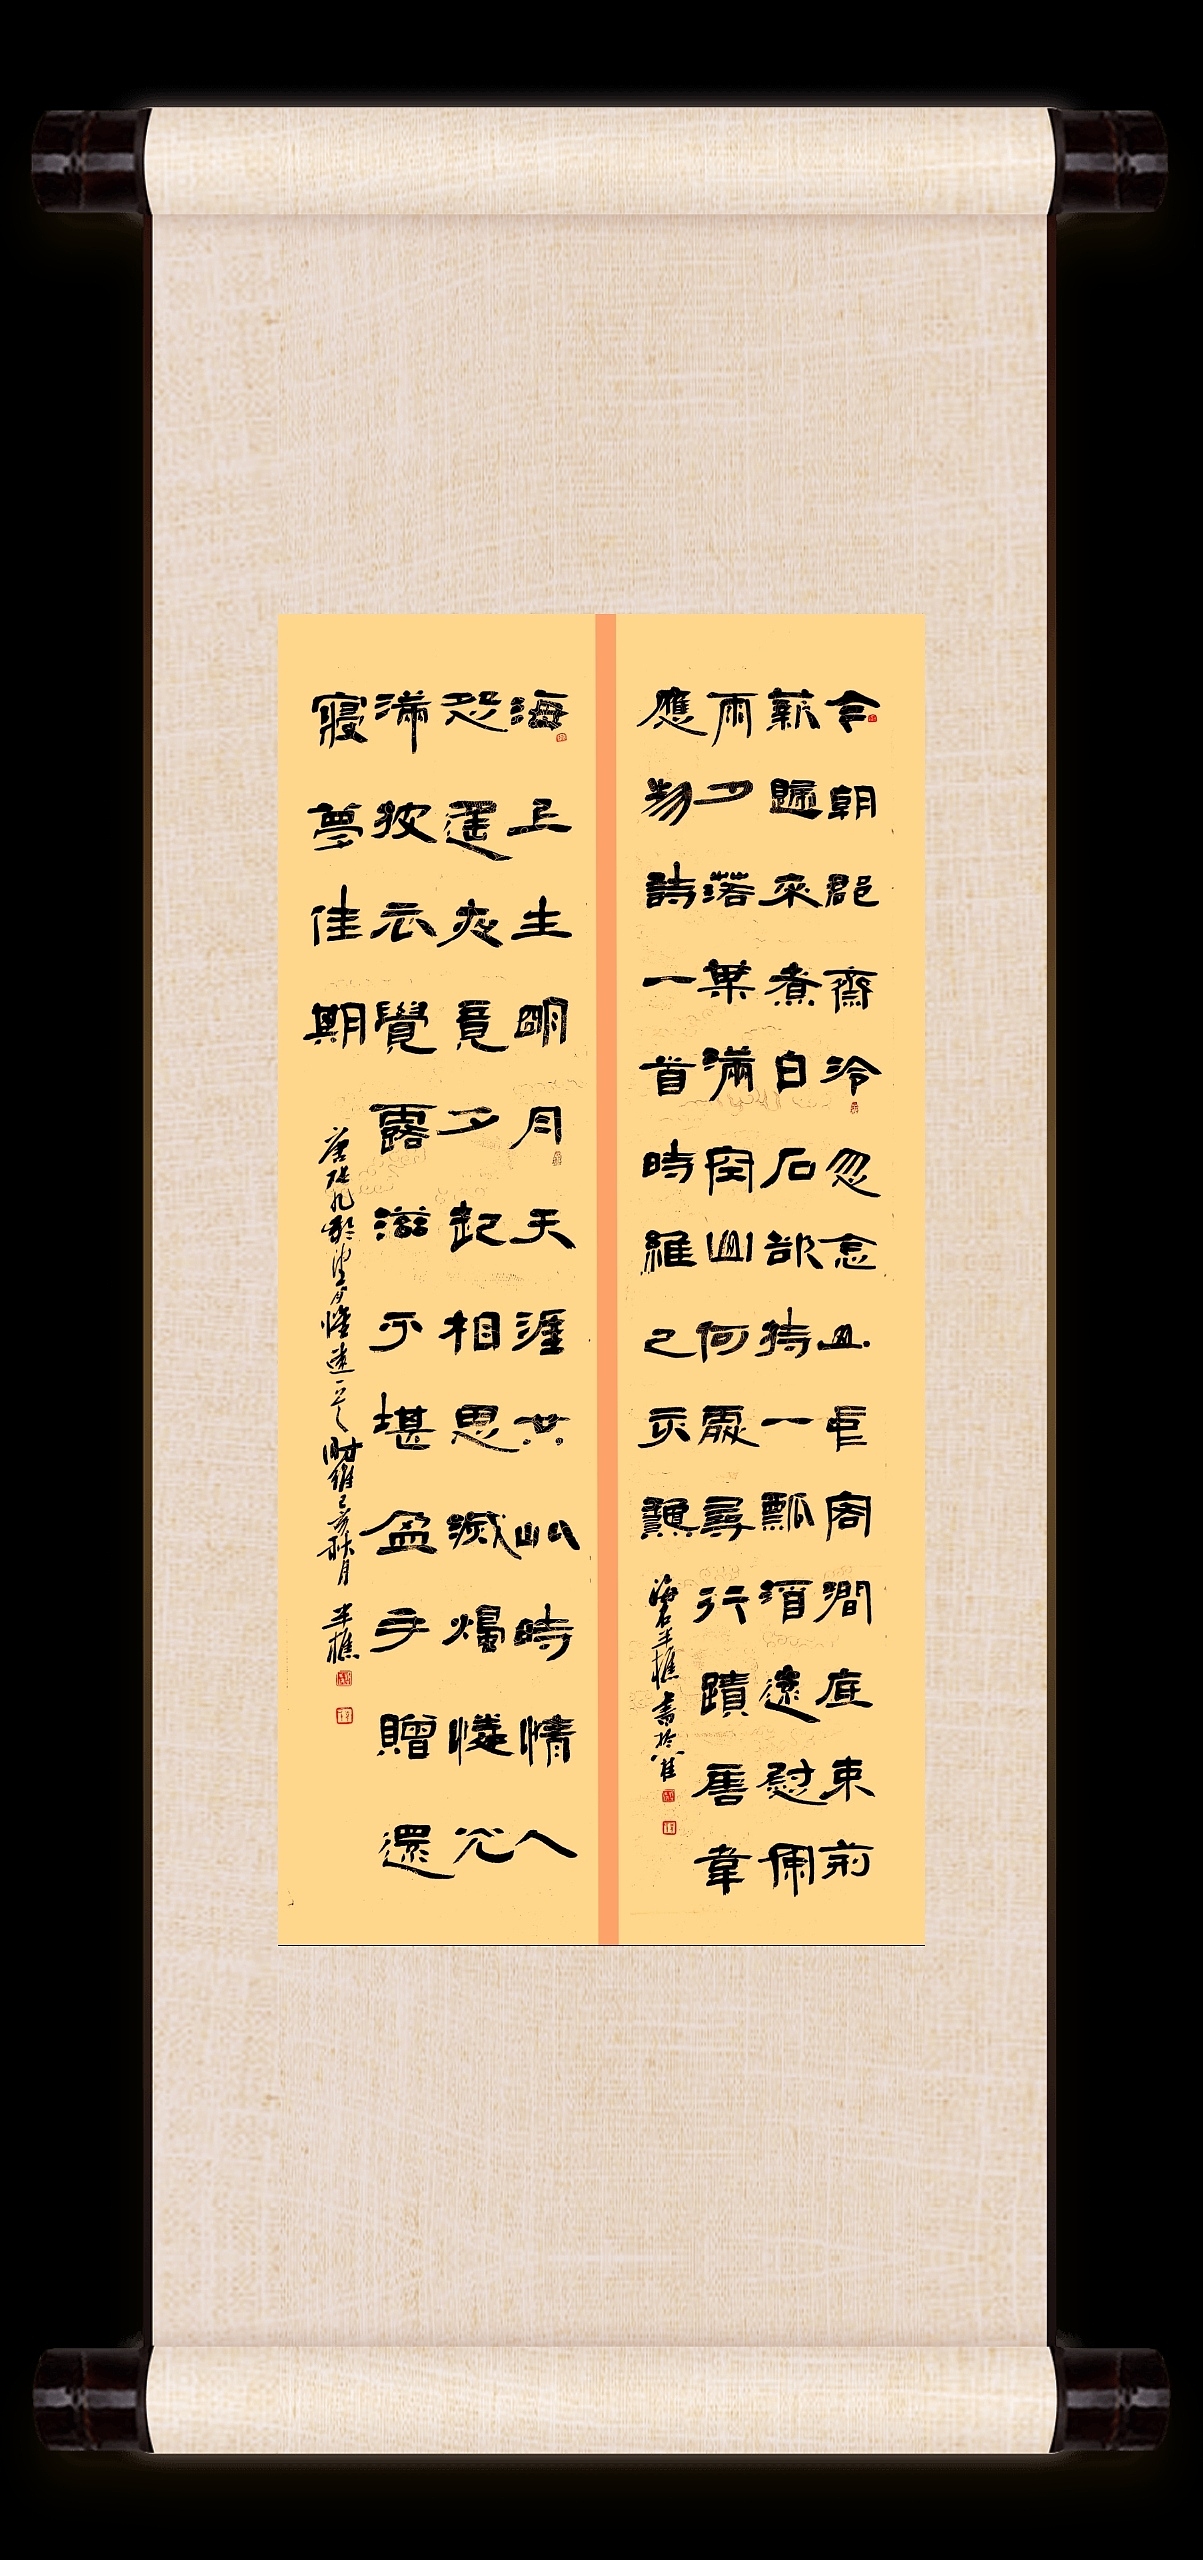 今朝郡齋冷忽念山中客澗底束荊
薪歸來煮白石欲持一瓢酒遠慰風
雨夕落葉滿空山何處尋行蹟唐韋
應物詩一首時維己亥龝
半樵書於八桂
海上生明月天涯共此時情人
怨遙夜竟夕起相思滅燭憐光
滿披衣覺露滋不堪盈手贈還
寢夢佳期
唐張九齡望月懷遠一首時維己亥秋月半樵